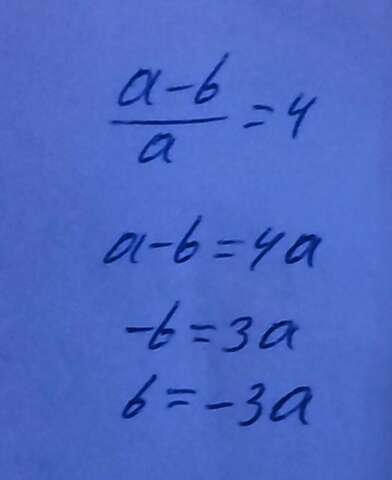 a-b/a=4
a-b=4a
-b=3a
b=-3a